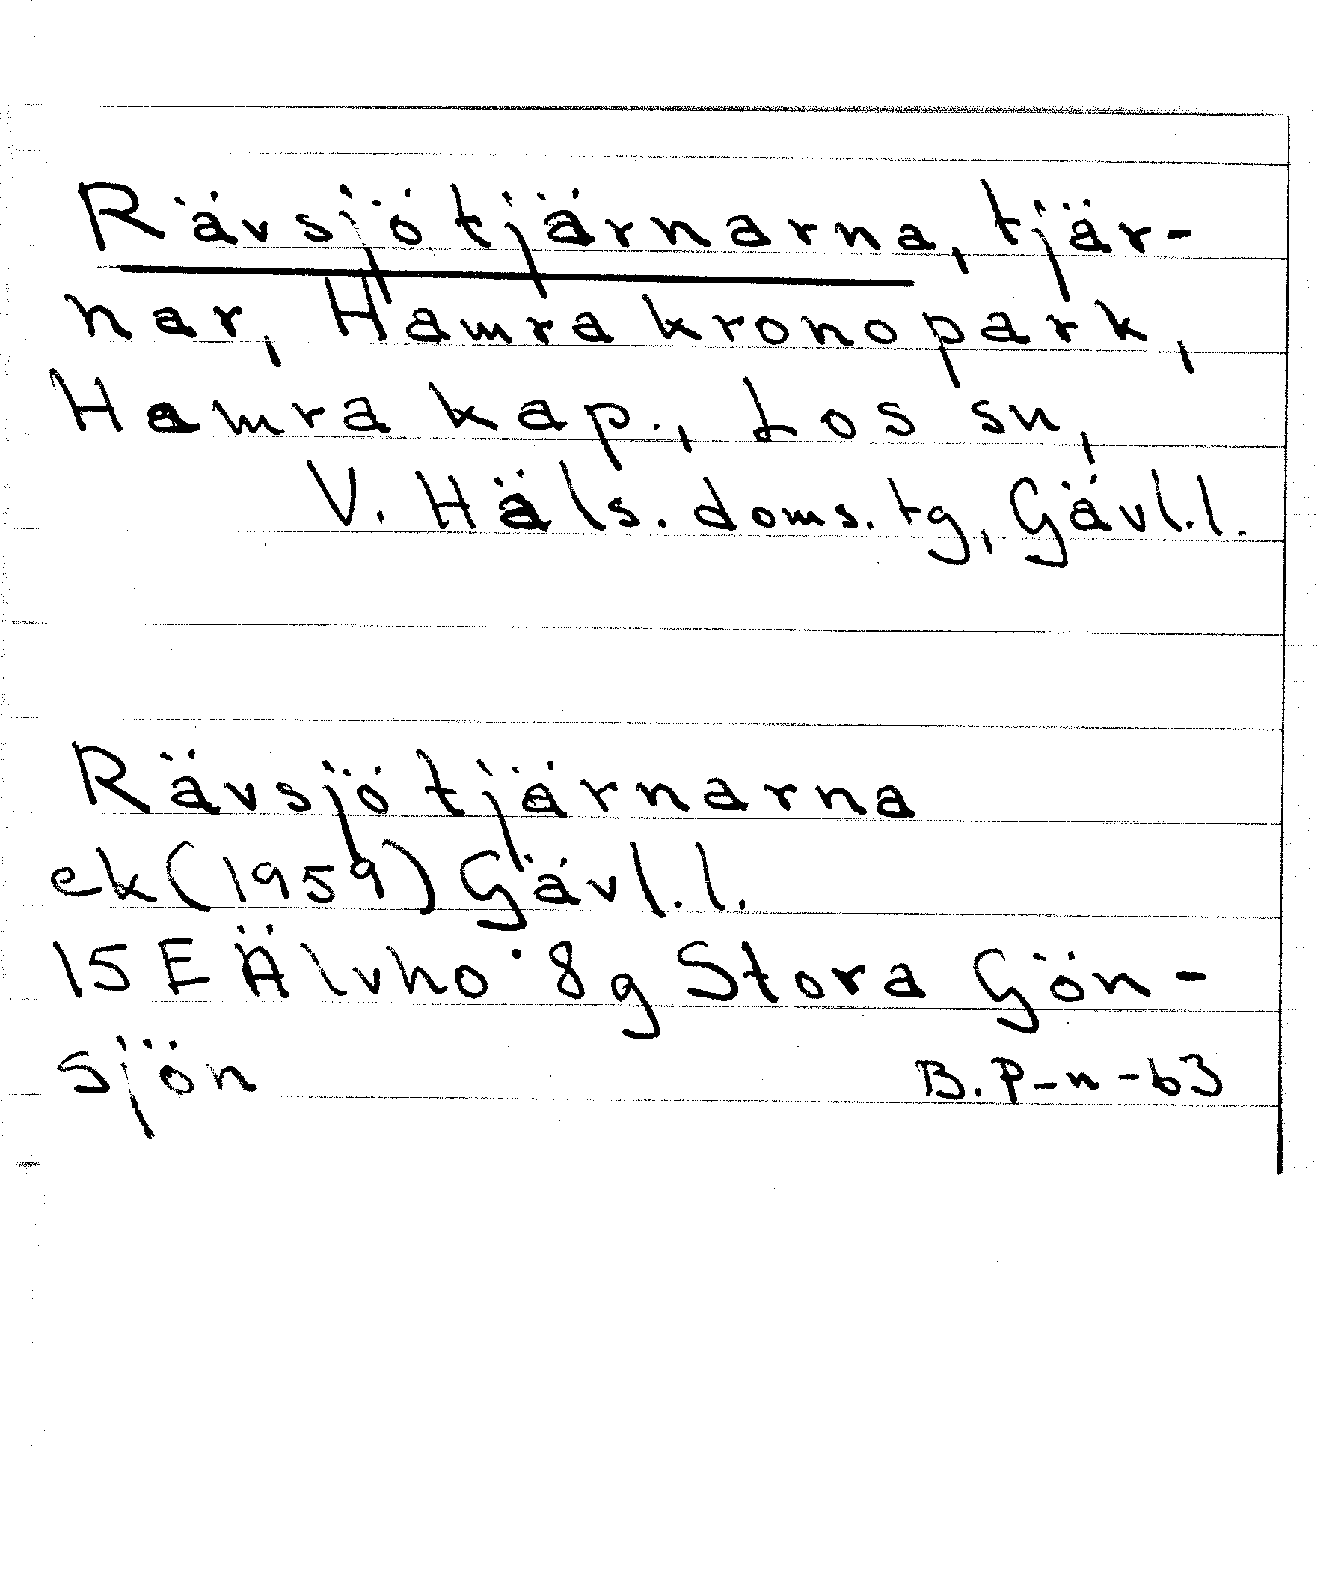 Rävsjötjärnarna, tjär-
nar, Hamra kronopark,
Hamra kap., Los sn,
V. Häls. doms. tg, Gävl. l.
Rävsjötjärnarna
ek (1959) Gävl. l.
15 E Älvho 8g Stora Gön-
sjön
B. P-n-63